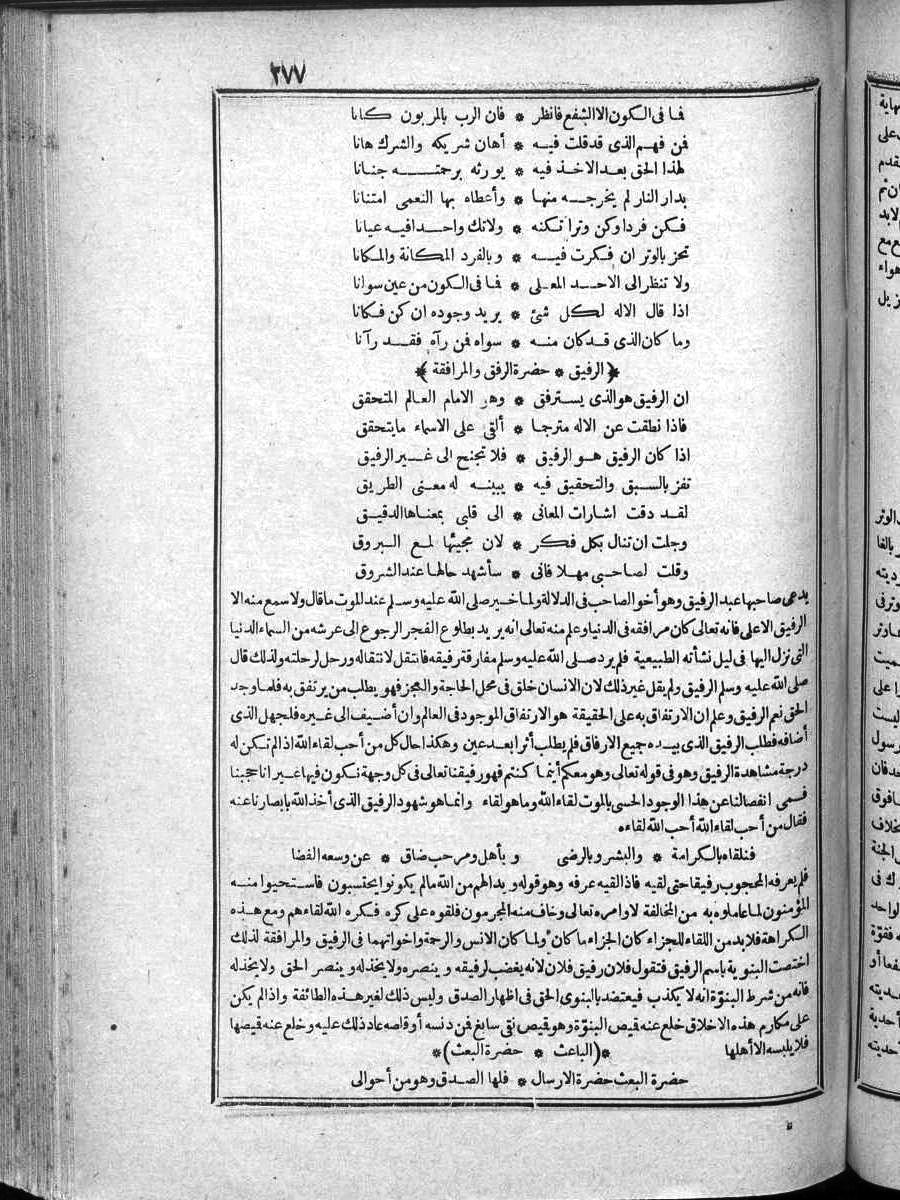 ٢٧٧
فما فى الكون الا الشفع فانظر * فان الرب بالمربون كانا
فمن فهم الذى قد قلت فيه * أهان شريكه والشرك هانا
لهذا الحق بعد الاخذ فيه * يورثه برحمته جنانا
بدار النار لم يخرجه منها * وأعطاه بها النعمى امتنانا
فكن فردا وكن وترا تكنه * ولاتك واحدا فيه عيانا
تحز بالوتر ان فكرت فيه * وبالفرد المكانة والمكانا
ولا تنظر الى الاحد المعلى * فما فى الكون من عين سوانا
اذا قال الاله لكل شئ * يريد وجوده ان كن فكانا
وما كان الذى قد كان منه * سواه فمن رآه فقد رآنا
﴿ الرفيق * حضرة الرفق والمرافقة ﴾
ان الرفيق هو الذى يسترفق * وهو الامام العالم المتحقق
فاذا نطقت عن الاله مترجما * ألقى على الاسماء ما يتحقق
اذا كان الرفيق هو الرفيق * فلا تجنح الى غير الرفيق
تفز بالسبق والتحقيق فيه * يبينه له معنى الطريق
لقد دقت اشارات المعانى * الى قلبى بمعناها الدقيق
وجلت ان تنال بكل فكر * لان مجيئها لمع البروق
وقلت لصاحبى مهلا فانى * سأشهد حالها عند الشروق
يدعى صاحبها عبد الرفيق وهو أخو الصاحب فى الدلالة ولما خير صلى الله عليه وسلم عند الموت ما قال ولا سمع منه الا
الرفيق الاعلى فانه تعالى كان مرافقه فى الدنيا وعلم منه تعالى انه يريد بطلوع الفجر الرجوع الى عرشه من السماء الدنيا
التى نزل اليها فى ليل نشأته الطبيعية فلم يرد صلى الله عليه وسلم مفارقة رفيقه فانتقل لانتقاله ورحل لرحلته ولذلك قال
صلى الله عليه وسلم الرفيق ولم يقل غير ذلك لان الانسان خلق فى محل الحاجة والعجز فهو يطلب من يرتفق به فلما وجد
الحق نعم الرفيق وعلم ان الارتفاق به على الحقيقة هو الارتفاق الموجود فى العالم وان أضيف الى غيره فلجهل الذى
أضافه فطلب الرفيق الذى بيده جميع الارفاق فلم يطلب أثرا بعد عين وهكذا حال كل من أحب لقاء الله اذا لم تكن له
درجة مشاهدة الرفيق وهو فى قوله تعالى وهو معكم أينما كنتم فهو رفيقنا تعالى فى كل وجهة نكون فيها غير انا حجبنا
فسمى انفصالنا عن هذا الوجود الحسى بالموت لقاء الله وما هو لقاء وانما هو شهود الرفيق الذى أخذ الله بابصارنا عنه
فقال من أحب لقاء الله أحب الله لقاءه
فنلقاه بالكرامة * والبشر وبالرضى وبأهل ومرحب ضاق * عن وسعه الفضا
فلم يعرفه المحجوب رفيقا حتى لقيه فاذا لقيه عرفه وهو قوله وبدا لهم من الله ما لم يكونوا يحتسبون فاستحيوا منه
المؤمنون لما عاملوه به من المخالفة لاوامره تعالى وخاف منه المجرمون فلقوه على كره فكره الله لقاءهم ومع هذه
الكراهة فلا بد من اللقاء للجزاء كان الجزاء ما كان ولما كان الانس والرحمة واخواتهما فى الرفيق والمرافقة لذلك
اختصت البنوية باسم الرفيق فتقول فلان رفيق فلان لانه يغضب لرفيقه وينصره ولا يخذله وينصر الحق ولا يخذله
فانه من شرط البنوّة انه لا يكذب فيعتضد بالبنوى الحق فى اظهار الصدق وليس ذلك لغير هذه الطائفة واذا لم يكن
على مكارم هذه الاخلاق خلع عنه قميص البنوّة وهو قميص نقى سابغ فمن دنسه أو قلصه عاد ذلك عليه وخلع عنه قميصها
فلا يلبسه الا أهلها *(الباعث * حضرة البعث)*
حضرة البعث حضرة الارسال * فلها الصدق وهو من أحوالى